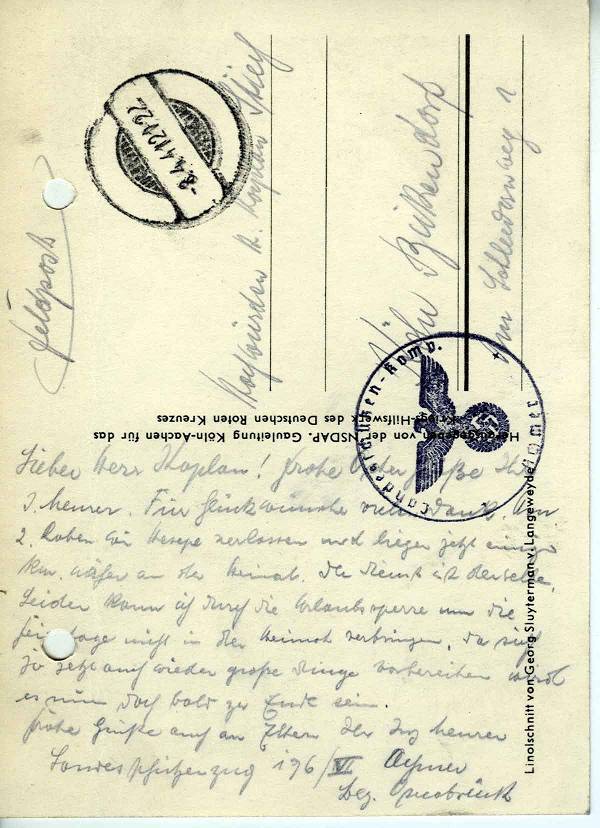 Feldpost
8.4.41 21-22
Hochwürden H. Kaplan Stief
Köln Bickendorf
Am Schlehdornweg 1
Landesschützen-Komp.
Herausgegeben von der NSDAP. Gauleitung Köln-Aachen für das
Kriegs-Hilfswerk des Deutschen Roten Kreuzes
Linolschnitt von Georg Sluyterman v. Langeweyde
Lieber Herr Kaplan! Frohe Ostergrüße Ihr
J. Heurer. Für Glückwünsche vielen Dank. Am
2. haben wir Hesepe verlassen und liegen jetzt einige
km. näher an der Heimat. Der Dienst ist derselbe.
Leider kann ich durch die Urlaubssperre nun die
Feiertage nicht in der Heimat verbringen. Da sich
ja jetzt auch wieder große Dinge vorbereiten wird
es nun doch bald zu Ende sein.
Frohe Grüße auch an Eltern Ihr Jos Heurer
Landesschützenzug 196/VI Achmer
Bez. Osnabrück